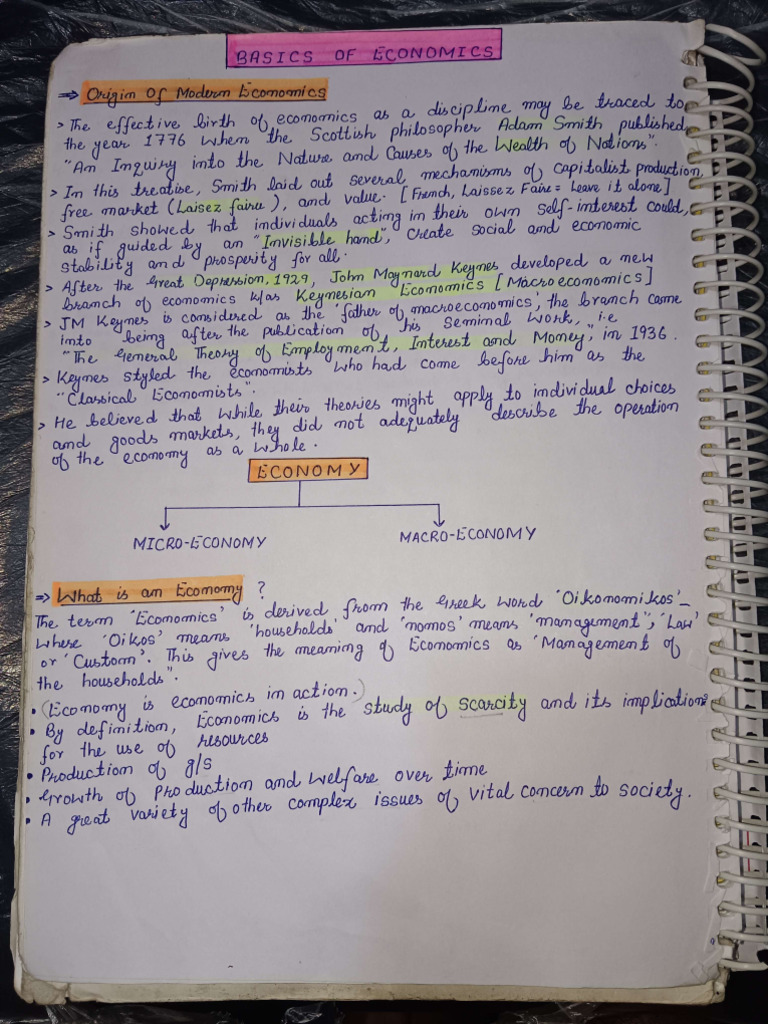 BASICS OF ECONOMICS
⇒ Origin Of Modern Economics
> The effective birth of economics as a discipline may be traced to
the year 1776 when the Scottish philosopher Adam Smith published
"An Inquiry into the Nature and Causes of the Wealth of Nations".
> In this treatise, Smith laid out several mechanisms of capitalist production,
free market (Laisez faire), and value. [French, Laissez Faire = Leave it alone]
> Smith showed that individuals acting in their own self-interest could,
as if guided by an "Invisible hand", create social and economic
stability and prosperity for all.
> After the Great Depression, 1929, John Maynard Keynes developed a new
branch of economics k/as Keynesian Economics [Macroeconomics]
> JM Keynes is considered as the 'father of macroeconomics', the branch came
into being after the publication of his Seminal Work, i.e
"The General Theory of Employment, Interest and Money," in 1936.
> Keynes styled the economists who had come before him as the
"Classical Economists".
> He believed that while their theories might apply to individual choices
and goods markets, they did not adequately describe the operation
of the economy as a whole.
ECONOMY
MICRO-ECONOMY MACRO-ECONOMY
⇒ What is an Economy ?
The term 'Economics' is derived from the Greek word 'Oikonomikos' –
where 'Oikos' means 'households' and 'nomos' means 'management", 'Law'
or 'Custom'. This gives the meaning of Economics as 'Management of
the households".
• (Economy is economics in action.)
• By definition, Economics is the study of scarcity and its implications
for the use of resources
• Production of g/s
• Growth of production and welfare over time
• A great variety of other complex issues of vital concern to society.